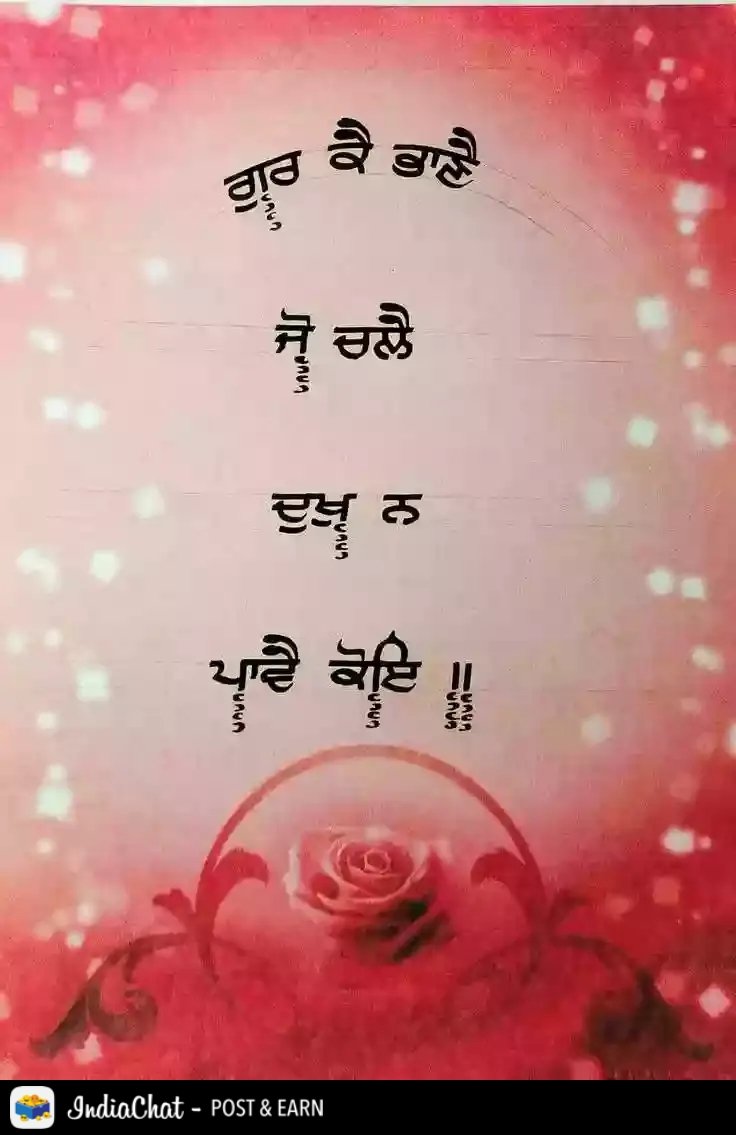 ਗੁਰ ਕੈ ਭਾਣੈ
ਜੋ ਚਲੈ
ਦੁਖੁ ਨ
ਪਾਵੈ ਕੋਇ ॥
IndiaChat - POST & EARN